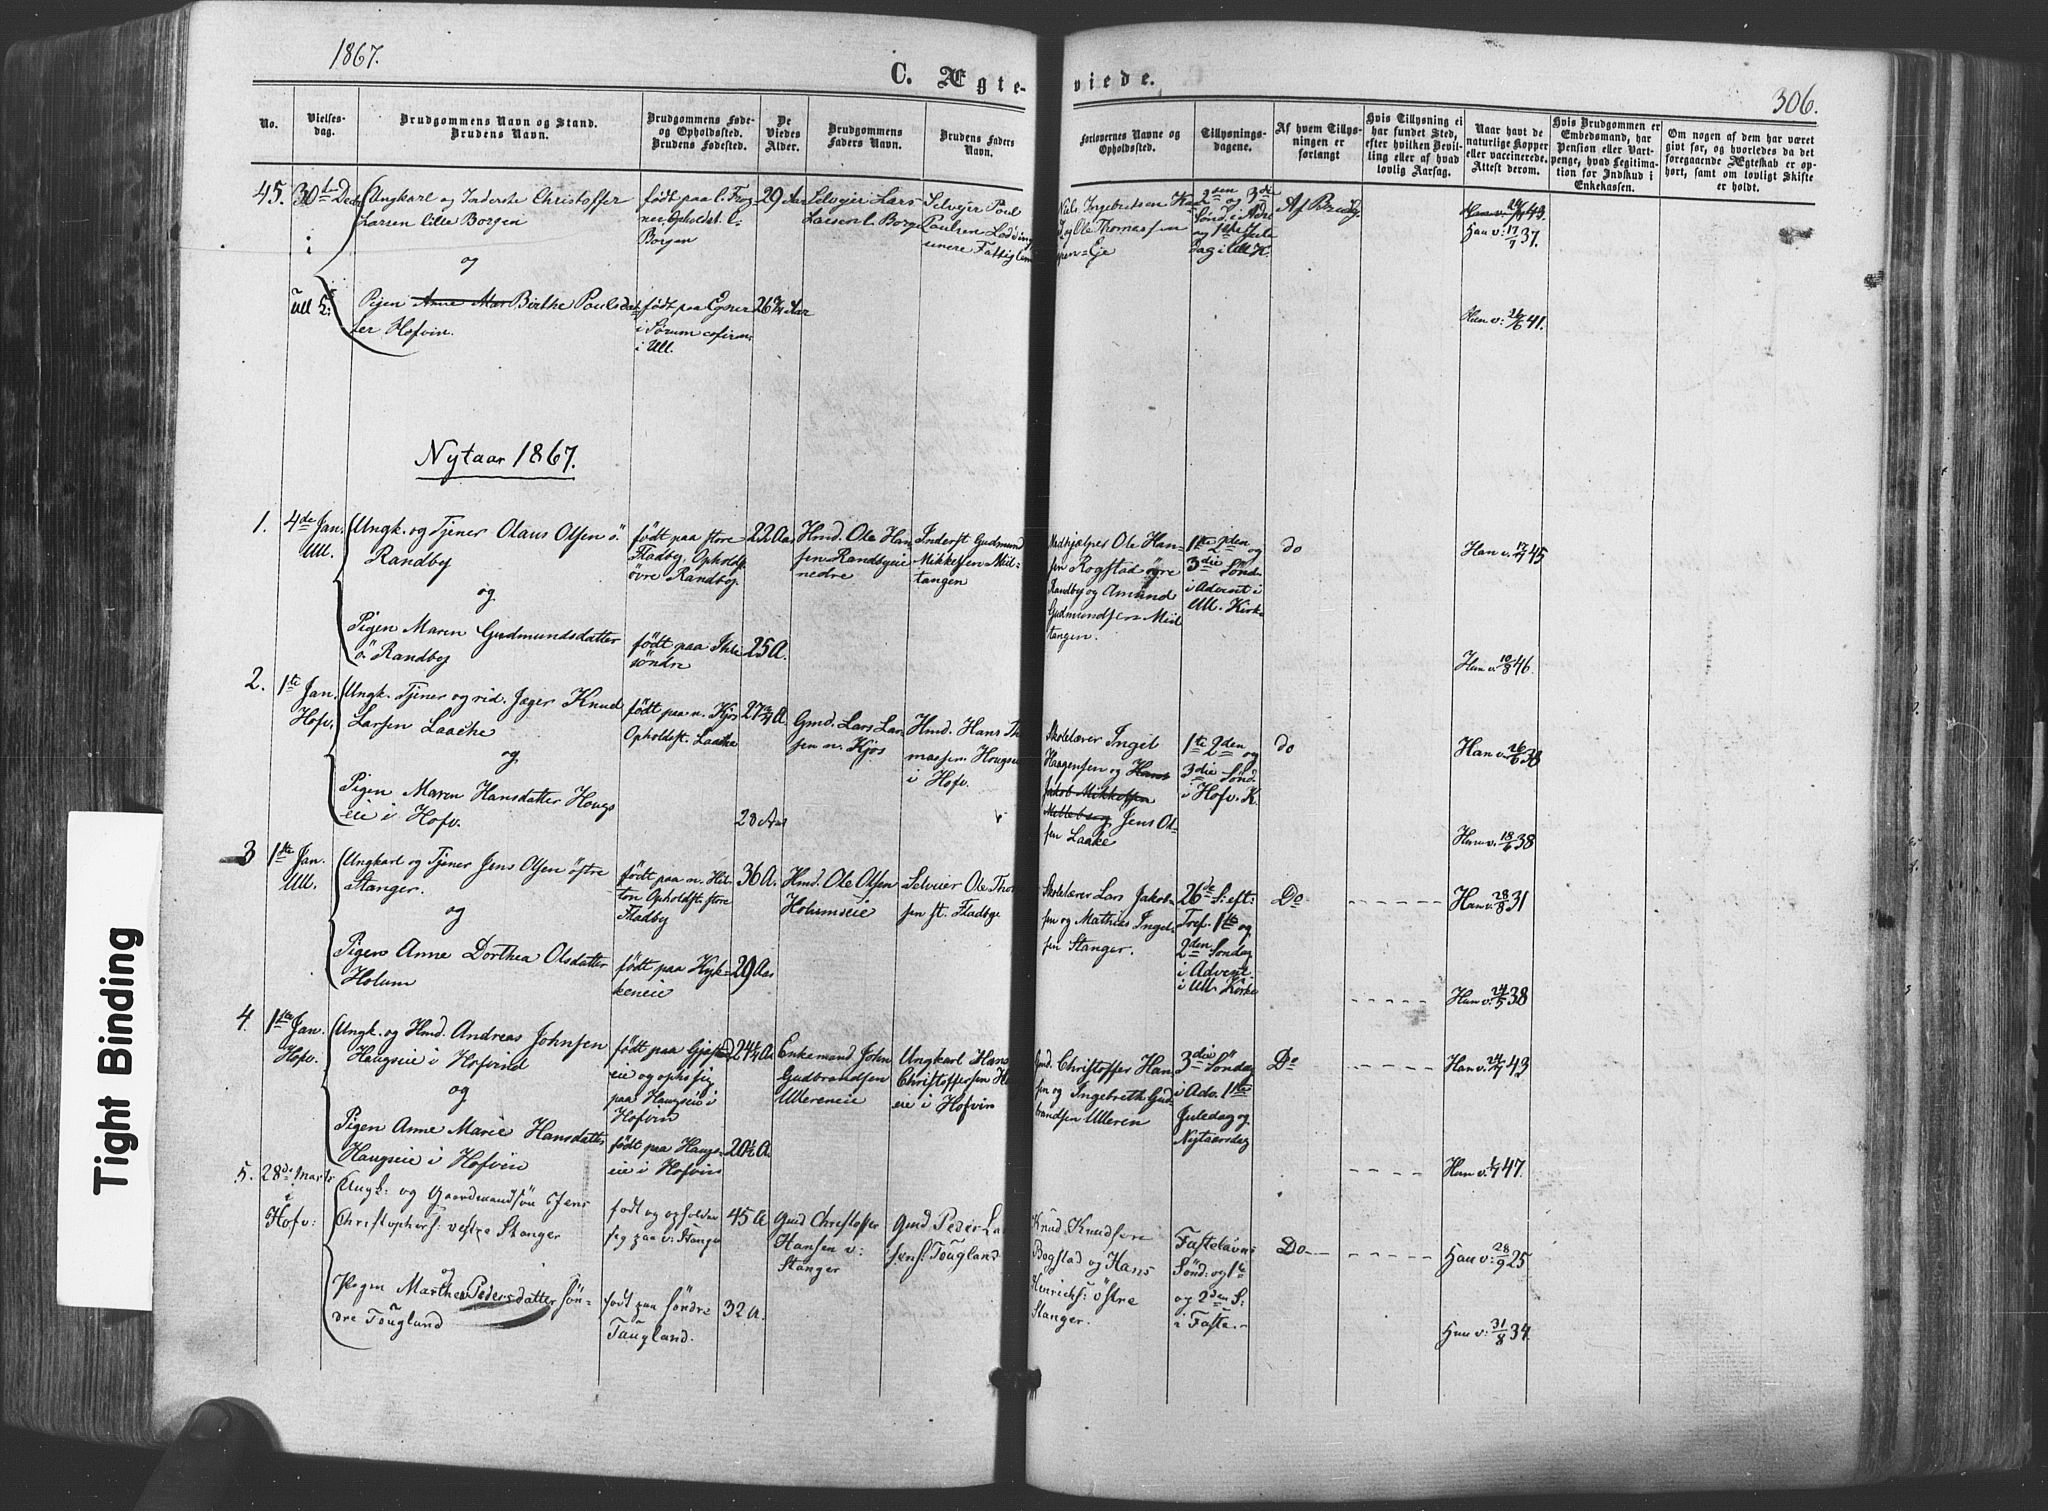 1867.
C. Ægte-
viede.
306.
No.
Vielses-
dag.
Brudgommens Navn og Stand.
Brudens Navn.
Brudgommens Føde-
og Opholdssted.
Brudens Fødested.
De
Viedes
Alder.
Brudgommens
Faders Navn.
Brudens Faders
Navn.
Forlovernes Navne og
Opholdssted.
Tillysnings-
dagene.
Af hvem Tillys-
ningen er
forlangt
Hvis Tillysning ei
har fundet Sted,
efter hvilken Bevil-
ling eller af hvad
lovlig Aarsag.
Naar havt de
naturlige Kopper
eller vaccinerede.
Attest derom.
Hvis Brudgommen er
Embedsmand, har
Pension eller Vart-
penge, hvad Legitima-
tion for Indskud i
Enkekassen.
Om nogen af dem har været
givt før, og hvorledes da det
foregaaende Ægteskab er op-
hørt, samt om lovligt Skifte
er holdt.
45.
30te Decbr
i
Ull
Ungkarl og Inderste Christoffer
Larsen lille Borgen
og
Pigen Anne Mar Birthe Pouls-
ter Hofvin.
født paa l. Frog
ner Opholdst. l.
Borgen
født paa Egner
i Sørum cofirm:
i Ull.
29 Aar
26 3/4 Aar
Selveier Lars
Larsen l. Borgen
Selveier Poul
Paulsen Lødding
Niels Ingebretsen
og Ole Thomassen
2den og 3die
Sønd. i Adv.
og 1ste Jule
dag i Ull. K.
Af Brudg.
Han v. 17/7 37.
Hun v: 26/6 41.
Nytaar 1867.
1.
4de Jan.
Ull.
Ungk. og Tjener Olaus Olsen ö.
Randby
og
Pigen Maren Gudmundsdatter
ö. Randby
født paa store
Fladby, Opholdst.
övre Randby
født paa Ihle
söndre
22 Aar
25 A.
Hmd. Ole Han
sen Randbyeie
nedre
Inderst Gudmund
Mikkelsen Mid-
tangen
Medhjælper Ole Han-
sen Rogstad øvre
Randby og Amund
Gudmundsen Mid
tangen.
1ste 2den og
3die Sønd.
i Advent i
Ull. Kirke
do
Han v. 17/7 45
Hun v. 10/8 46
2.
1ste Jan.
Hofv.
Ungk. Tjener og rid. Jæger Knud
Larsen Laache
og
Pigen Maren Hansdatter Hougs
eie i Hofv.
født paa n. Kjos
Opholdst. Laache
27 3/4 A.
28 Aar
Gmd. Lars Lar
sen n. Kjos
Hmd. Hans Tho
massen Hougseie
i Hofv.
Skolelærer Ingel
Haagensen og Hans
Jakob Mikkelsen
Melleberg Jens Ol-
sen Laake
1ste 2den og
3die Sønd.
i Hofv. K.
do
Han v. 26/6 38
Hun v. 18/6 38
3
1ste Jan.
Ull.
Ungkarl og Tjener Jens Olsen östre
Stanger.
og
Pigen Anne Dorthea Olsdatter
Holum
født paa n. Hil-
ton Opholdst. store
Fladby
født paa Kyk-
keneie
36 A.
29 Aar
Hmd. Ole Olsen
Holumseie
Selveier Ole Thor
sen st. Fladbye
Skolelærer Lars Jakob-
sen og Mathias Ingel-
sen Stanger.
26de S. eft:
Tref. 1ste og
2den Søndag
i Advent
i Ull. Kirke
Do
Han v. 28/8 31
Hun v. 24/5 38
4.
1ste Jan.
Hofv.
Ungk. og Hmd. Andreas Johnsen
Haugseie i Hofvind
og
Pigen Anne Marie Hansdatter
Haugseie i Hofvin
født paa Gjøstad
eie og opho sig
paa Haugseie i
Hofvin
født paa Haugs-
eie i Hofvin
24 1/2 A.
20 1/2 A.
Enkemand John
Gudbrandsen
Ullereneie
Ungkarl Hans
Christoffersen
eie i Hofvin
Gmd. Christoffer Han
sen og Ingebreth Gud
brandsen Ulleren
3die Söndag
i Adv. 1ste
Juledag og
Nytaarsdag
Do
Han v. 24/7 43
Hun v. 1/7 47.
5.
28de Marts
i
Hofv:
Ungk: og Gaardmandsøn Jens
Christophers: vestre Stanger
og
Pigen Marthe Pedersdatter Søn-
dre Tougland
født og opholder
sig paa v: Stange
født paa Søndre
Taugland.
45 A
32 A.
Gmd Christoffer
Hansen v:
Stanger
Gmd Peder La
sens: Tougland
Knud Knudsen
Bogstad og Hans
Heinrichs: østre
Stanger.
Fastelavns
Sönd: og 1ste
og 2den S:
i Faste.
Do
Han v: 28/9 25
Hun v: 31/8 34.
Tight Binding